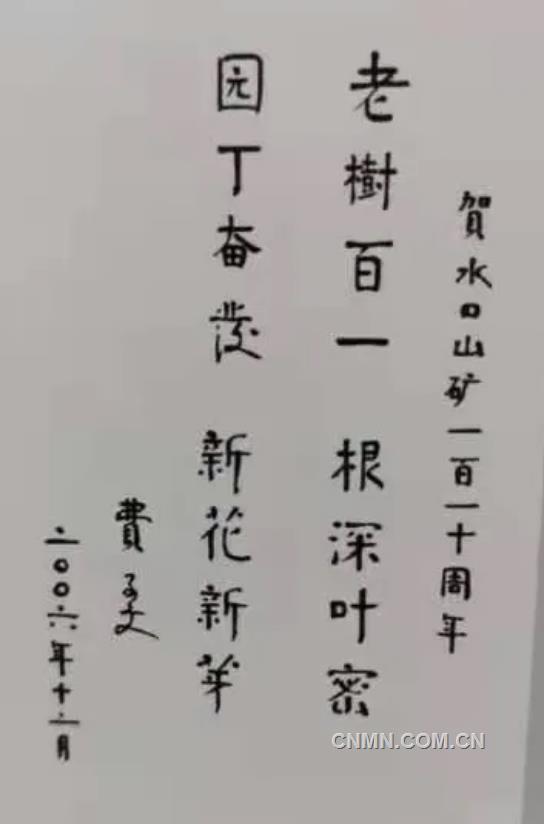 賀水口山矿一百一十周年
老樹百一 根深叶密
园丁奋发 新花新芽
費子文
二〇〇六年十二月
CNMN.COM.CN